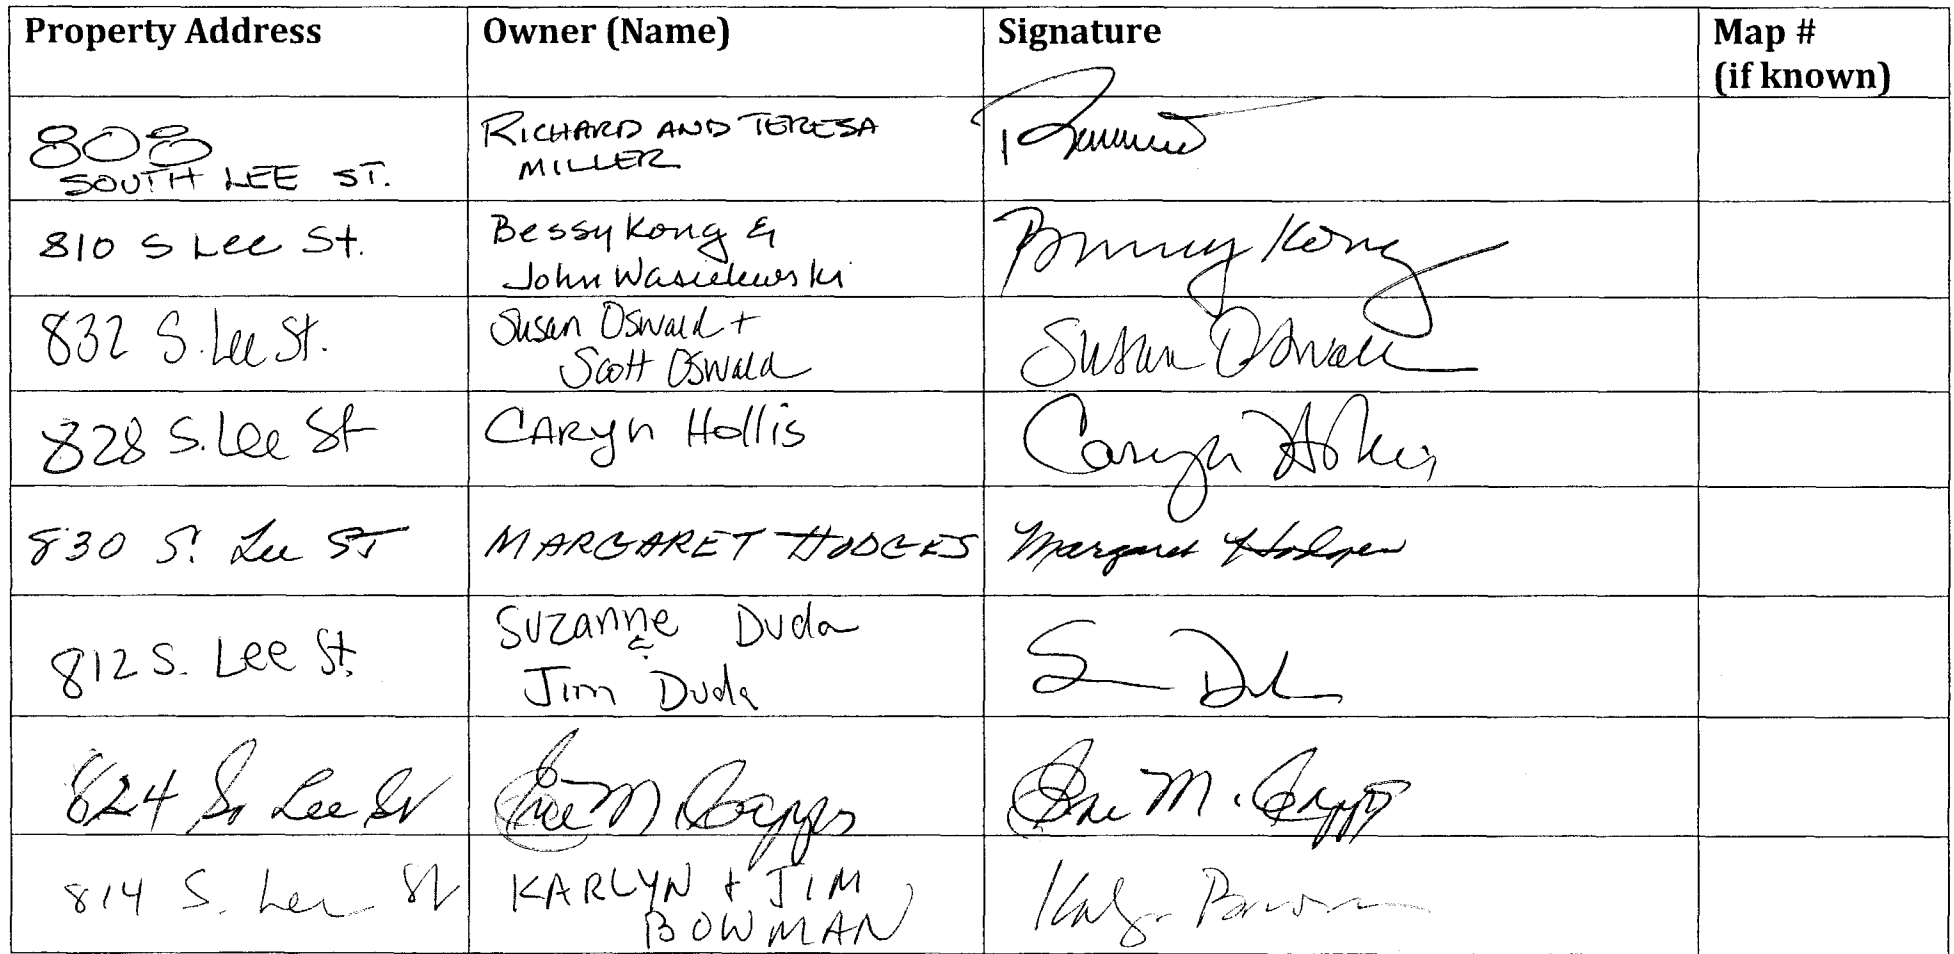 Property Address
Owner (Name)
Signature
Map #
(if known)
808
SOUTH LEE ST.
RICHARD AND TERESA
MILLER
810 S Lee St.
Bessy Kong &
John Wasielewski
Kong
832 S. Lee St.
Susan Oswald +
Scott Oswald
Susan Oswald
828 S. Lee St
CARyn Hollis
Caryn Hollis
830 S. Lee ST
MARGARET HODGES
Margaret Hodges
812 S. Lee St.
Suzanne Duda
&
Jim Duda
824 So Lee St
M.
M.
814 S. Lee St
KARLYN + JIM
BOWMAN
Karlyn Bowman